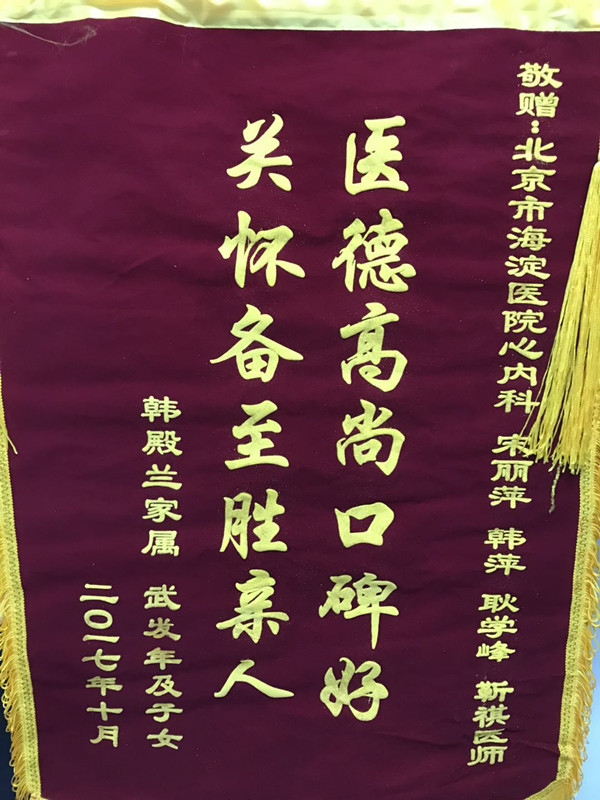 敬赠：北京市海淀医院心内科 宋丽萍 韩萍 耿学峰 靳祺医师
医德高尚口碑好
关怀备至胜亲人
韩殿兰家属 武发年及子女
二〇一七年十月